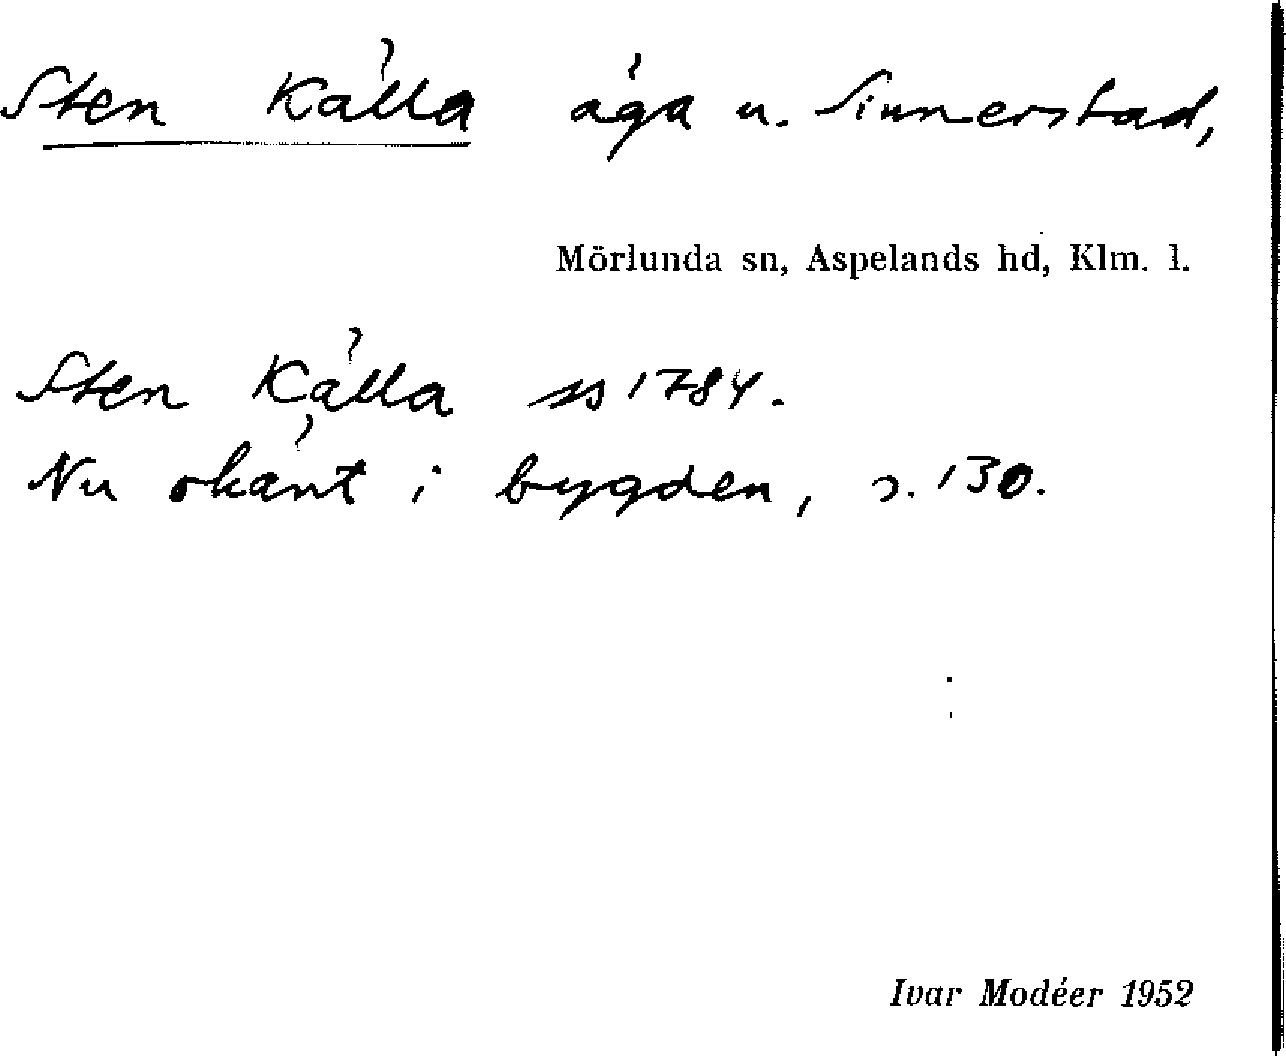 Sten Källa äga u. Sinnerstad,
Mörlunda sn, Aspelands hd, Klm. l.
Sten Källa ss 1784.
Nu okänt i bygden, s. 130.
Ivar Modéer 1952